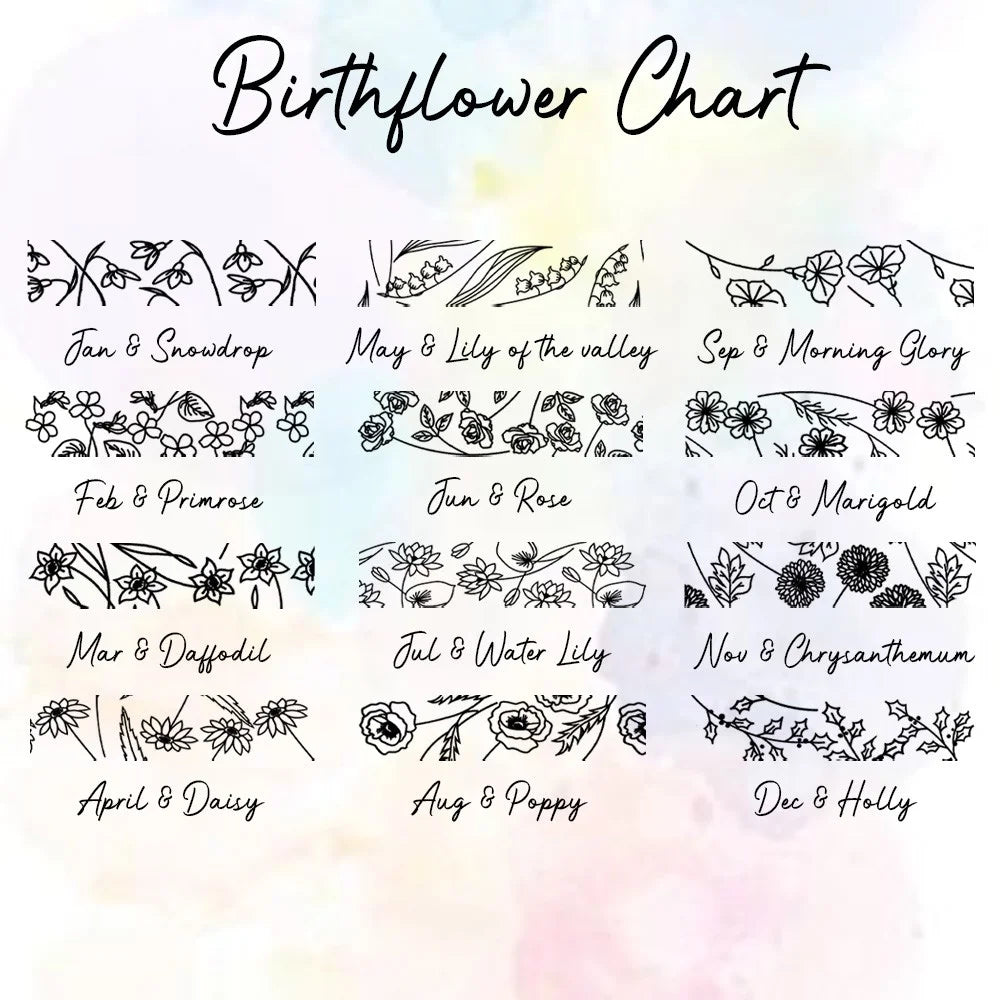 Birthflower Chart
Jan & Snowdrop
May & Lily of the valley
Sep & Morning Glory
Feb & Primrose
Jun & Rose
Oct & Marigold
Mar & Daffodil
Jul & Water Lily
Nov & Chrysanthemum
April & Daisy
Aug & Poppy
Dec & Holly